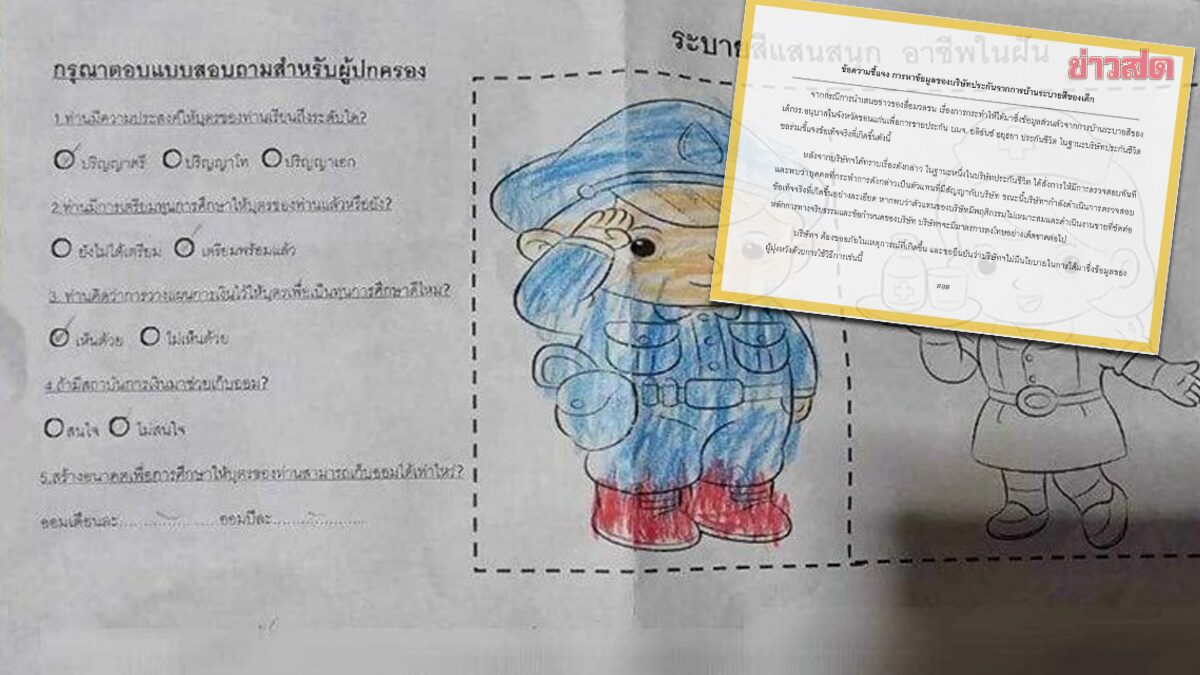 กรุณาตอบแบบสอบถามสำหรับผู้ปกครอง
1.ท่านมีความประสงค์ให้บุตรของท่านเรียนถึงระดับใด?
ปริญญาตรี ปริญญาโท ปริญญาเอก
2.ท่านมีการเตรียมทุนการศึกษาให้บุตรของท่านแล้วหรือยัง?
ยังไม่ได้เตรียม เตรียมพร้อมแล้ว
3. ท่านคิดว่าการวางแผนการเงินไว้ให้บุตรเพื่อเป็นทุนการศึกษาดีไหม?
เห็นด้วย ไม่เห็นด้วย
4.ถ้ามีสถาบันการเงินมาช่วยเก็บออม?
สนใจ ไม่สนใจ
5.สร้างอนาคตเพื่อการศึกษาให้บุตรของท่านสามารถเก็บออมได้เท่าไหร่?
ออมเดือนละ............ ออมปีละ............
ระบายสีแสนสนุก อาชีพในฝัน
ข่าวสด
ข้อความชี้แจง การหาข้อมูลของบริษัทประกันจากการบ้านระบายสีของเด็ก
จากกรณีการนำเสนอข่าวของสื่อมวลชน เรื่องการกระทำให้ได้มาซึ่งข้อมูลส่วนตัวจากการบ้านระบายสีของ
เด็กรร.อนุบาลในจังหวัดขอนแก่นเพื่อการขายประกัน บมจ. อลิอันซ์ อยุธยา ประกันชีวิต ในฐานะบริษัทประกันชีวิต
ขอร่วมชี้แจงข้อเท็จจริงที่เกิดขึ้นดังนี้
หลังจากบริษัทฯได้ทราบเรื่องดังกล่าว ในฐานะหนึ่งในบริษัทประกันชีวิต ได้สั่งการให้มีการตรวจสอบทันที
และพบว่าบุคคลที่กระทำการดังกล่าวเป็นตัวแทนที่มีสัญญากับบริษัท ขณะนี้บริษัทฯกำลังดำเนินการตรวจสอบ
ข้อเท็จจริงที่เกิดขึ้นอย่างละเอียด หากพบว่าตัวแทนของบริษัทมีพฤติกรรมไม่เหมาะสมและดำเนินงานขายที่ขัดต่อ
หลักการทางจริยธรรมและข้อกำหนดของบริษัท บริษัทฯจะมีมาตรการลงโทษอย่างเด็ดขาดต่อไป
บริษัทฯ ต้องขออภัยในเหตุการณ์ที่เกิดขึ้น และขอยืนยันว่าบริษัทฯไม่มีนโยบายในการได้มาซึ่งข้อมูลของ
ผู้มุ่งหวังด้วยการใช้วิธีการเช่นนี้